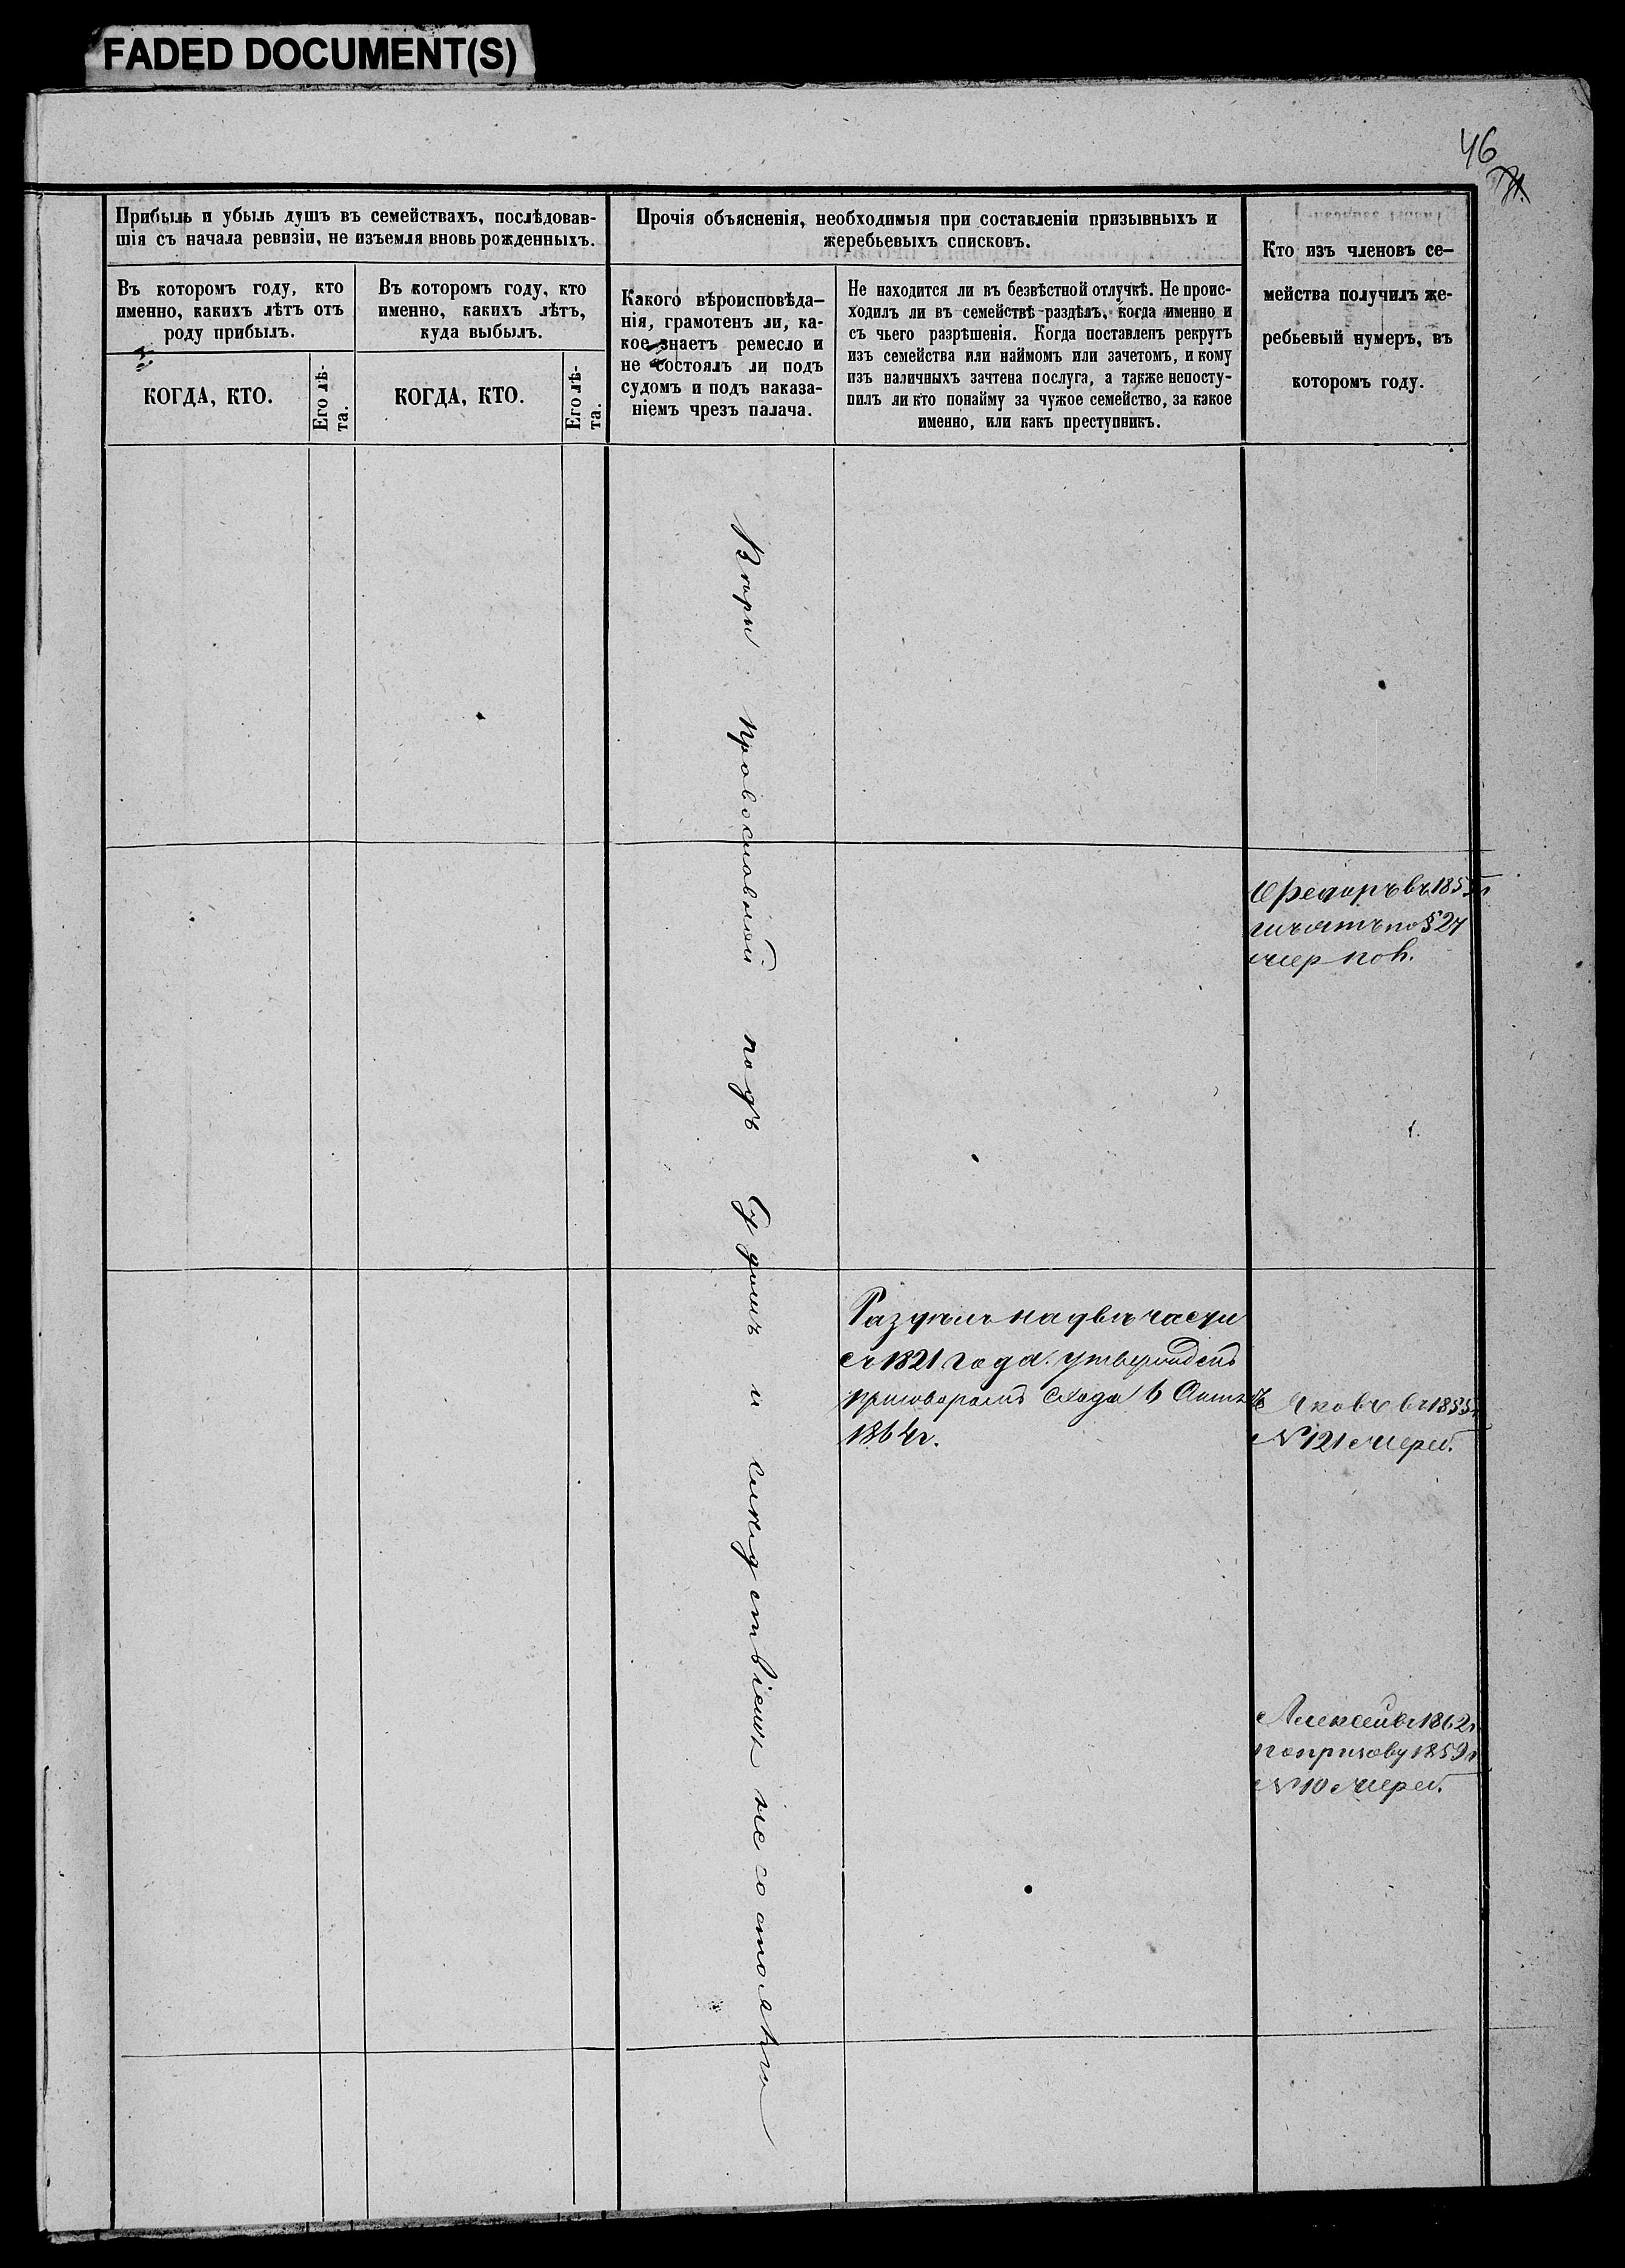 FADED DOCUMENT(S)
46
Прибыль и убыль душъ въ семействахъ, послѣдовав-
шія съ начала ревизіи, не изъемля вновь рожденныхъ.
Въ которомъ году, кто
именно, какихъ лѣтъ отъ
роду прибылъ.
КОГДА, КТО.
Его лѣ-
та.
Въ которомъ году, кто
именно, какихъ лѣтъ,
куда выбылъ.
КОГДА, КТО.
Его лѣ-
та.
Прочія объясненія, необходимыя при составленіи призывныхъ и
жеребьевыхъ списковъ.
Какого вѣроисповѣда-
нія, грамотенъ ли, ка-
кое знаетъ ремесло и
не состоялъ ли подъ
судомъ и подъ наказа-
ніемъ чрезъ палача.
Не находится ли въ безвѣстной отлучкѣ. Не проис-
ходилъ ли въ семействѣ раздѣлъ, когда именно и
съ чьего разрѣшенія. Когда поставленъ рекрутъ
изъ семейства или наймомъ или зачетомъ, и кому
изъ наличныхъ зачтена послуга, а также непосту-
пилъ ли кто понайму за чужое семейство, за какое
именно, или какъ преступникъ.
Кто изъ членовъ се-
мейства получилъ же-
ребьевый нумеръ, въ
которомъ году.
Вѣры православной подъ Судомъ и слѣдствіемъ не состояли
Федоръ въ 185
изъятъ по § 27
жер пол.
Раздѣлъ на двѣ части
съ 1821 года. утвержденъ
приговоромъ схода 6 Октяб
1864 г.
Яковъ въ 1855 г
№ 121 жереб.
Алексей въ 1862 г
по призову 1859 г
№ 10 жереб.